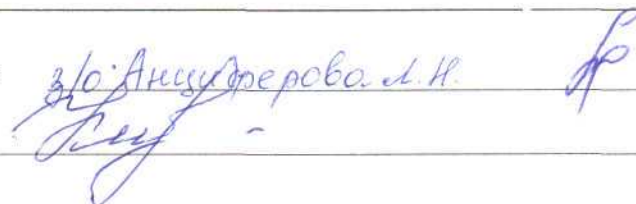 з/о Анциферова Л.Н.